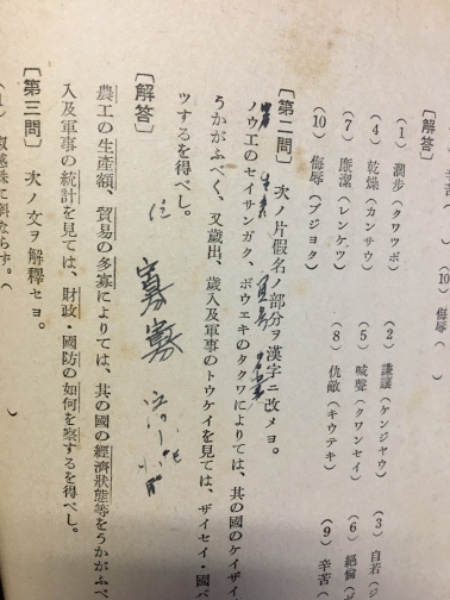 (10) 侮辱(
〔解答〕
(1) 濶步(クワツポ)
(2) 謙讓(ケンジヤウ)
(3) 自若(ジ
(4) 乾燥(カンサウ)
(5) 喊聲(クワンセイ)
(6) 絕倫(ゼ
(7) 廉潔(レンケツ)
(8) 仇敵(キウテキ)
(9) 辛苦(
(10) 侮辱(ブジヨク)
〔第二問〕 次ノ片假名ノ部分ヲ漢字ニ改メヨ。
ノウ工のセイサンガク、ボウエキのタクワによりては、其の國のケイザイ
うかがふべく、又歲出、歲入及軍事のトウケイを見ては、ザイセイ・國バ
ツするを得べし。
〔解答〕
寡寡
農工の生產額、貿易の多寡によりては、其の國の經濟狀態等をうかがふべ
入及軍事の統計を見ては、財政・國防の如何を察するを得べし。
〔第三問〕 次ノ文ヲ解釋セヨ。
(1) 叡感殊に斜ならず。(